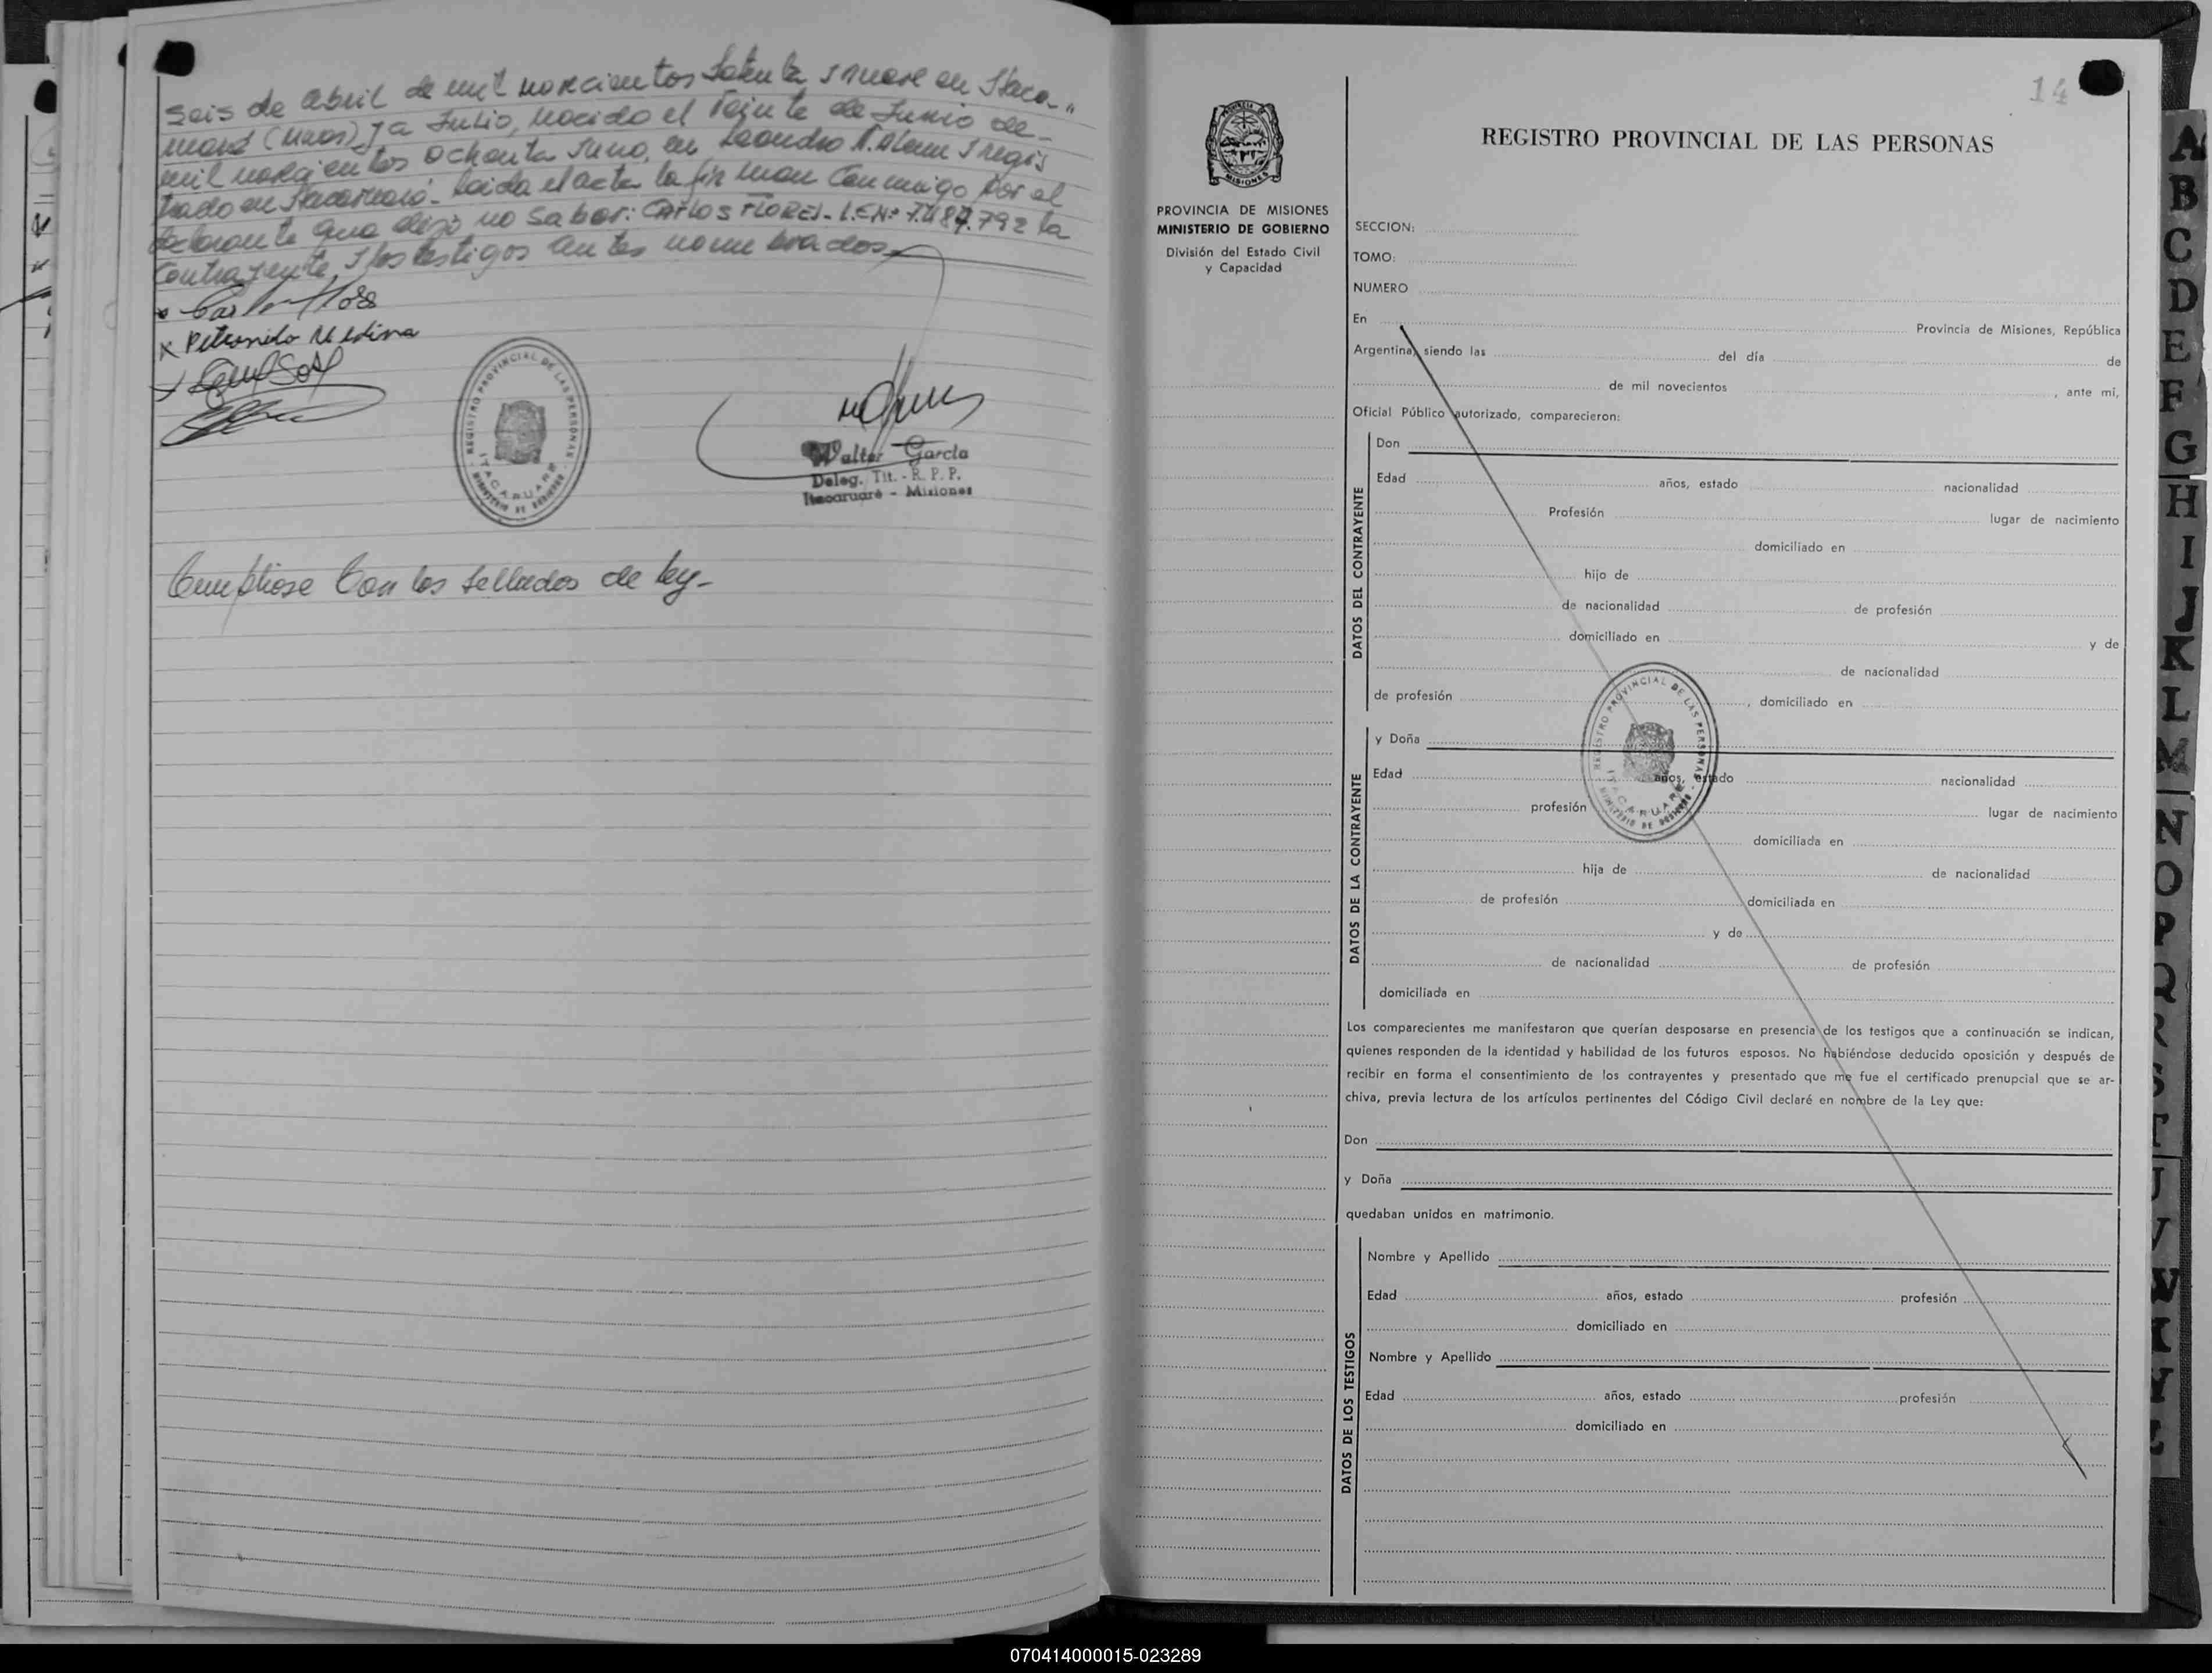 seis de abril de mil novecientos setenta y nueve en Itaca-
ruaré (Mnes) y a Julio, nacido el veinte de Junio de-
mil novecientos ochenta y uno, en Leandro N. Alem y regis
trado en Itacaruaré- Leida el acta la firman conmigo por el
declarante que dijo no saber: CARLOS FLORES- L.E.Nº 7.487.792 la
contrayente y los testigos antes nombrados
Carlos Flores
Petronila Medina
REGISTRO PROVINCIAL DE LAS PERSONAS
ITACARUARE
MINISTERIO DE GOBIERNO
Walter García
Deleg. Tit. - R. P. P.
Itacaruaré - Misiones
Cumpliose con los sellados de ley-
14
MISIONES
PROVINCIA DE MISIONES
MINISTERIO DE GOBIERNO
División del Estado Civil
y Capacidad
REGISTRO PROVINCIAL DE LAS PERSONAS
SECCION:
TOMO:
NUMERO
En Provincia de Misiones, República
Argentina, siendo las del día de
de mil novecientos , ante mí,
Oficial Público autorizado, comparecieron:
DATOS DEL CONTRAYENTE
Don
Edad años, estado nacionalidad
Profesión lugar de nacimiento
domiciliado en
hijo de
de nacionalidad de profesión
domiciliado en y de
de nacionalidad
de profesión , domiciliado en
DATOS DE LA CONTRAYENTE
y Doña
Edad años, estado nacionalidad
profesión lugar de nacimiento
domiciliada en
hija de de nacionalidad
de profesión domiciliada en
y de
de nacionalidad de profesión
domiciliada en
REGISTRO PROVINCIAL DE LAS PERSONAS
ITACARUARE
MINISTERIO DE GOBIERNO
Los comparecientes me manifestaron que querían desposarse en presencia de los testigos que a continuación se indican,
quienes responden de la identidad y habilidad de los futuros esposos. No habiéndose deducido oposición y después de
recibir en forma el consentimiento de los contrayentes y presentado que me fue el certificado prenupcial que se ar-
chiva, previa lectura de los artículos pertinentes del Código Civil declaré en nombre de la Ley que:
Don
y Doña
quedaban unidos en matrimonio.
DATOS DE LOS TESTIGOS
Nombre y Apellido
Edad años, estado profesión
domiciliado en
Nombre y Apellido
Edad años, estado profesión
domiciliado en
A
B
C
D
E
F
G
H
I
J
K
L
M
N
O
P
Q
070414000015-023289